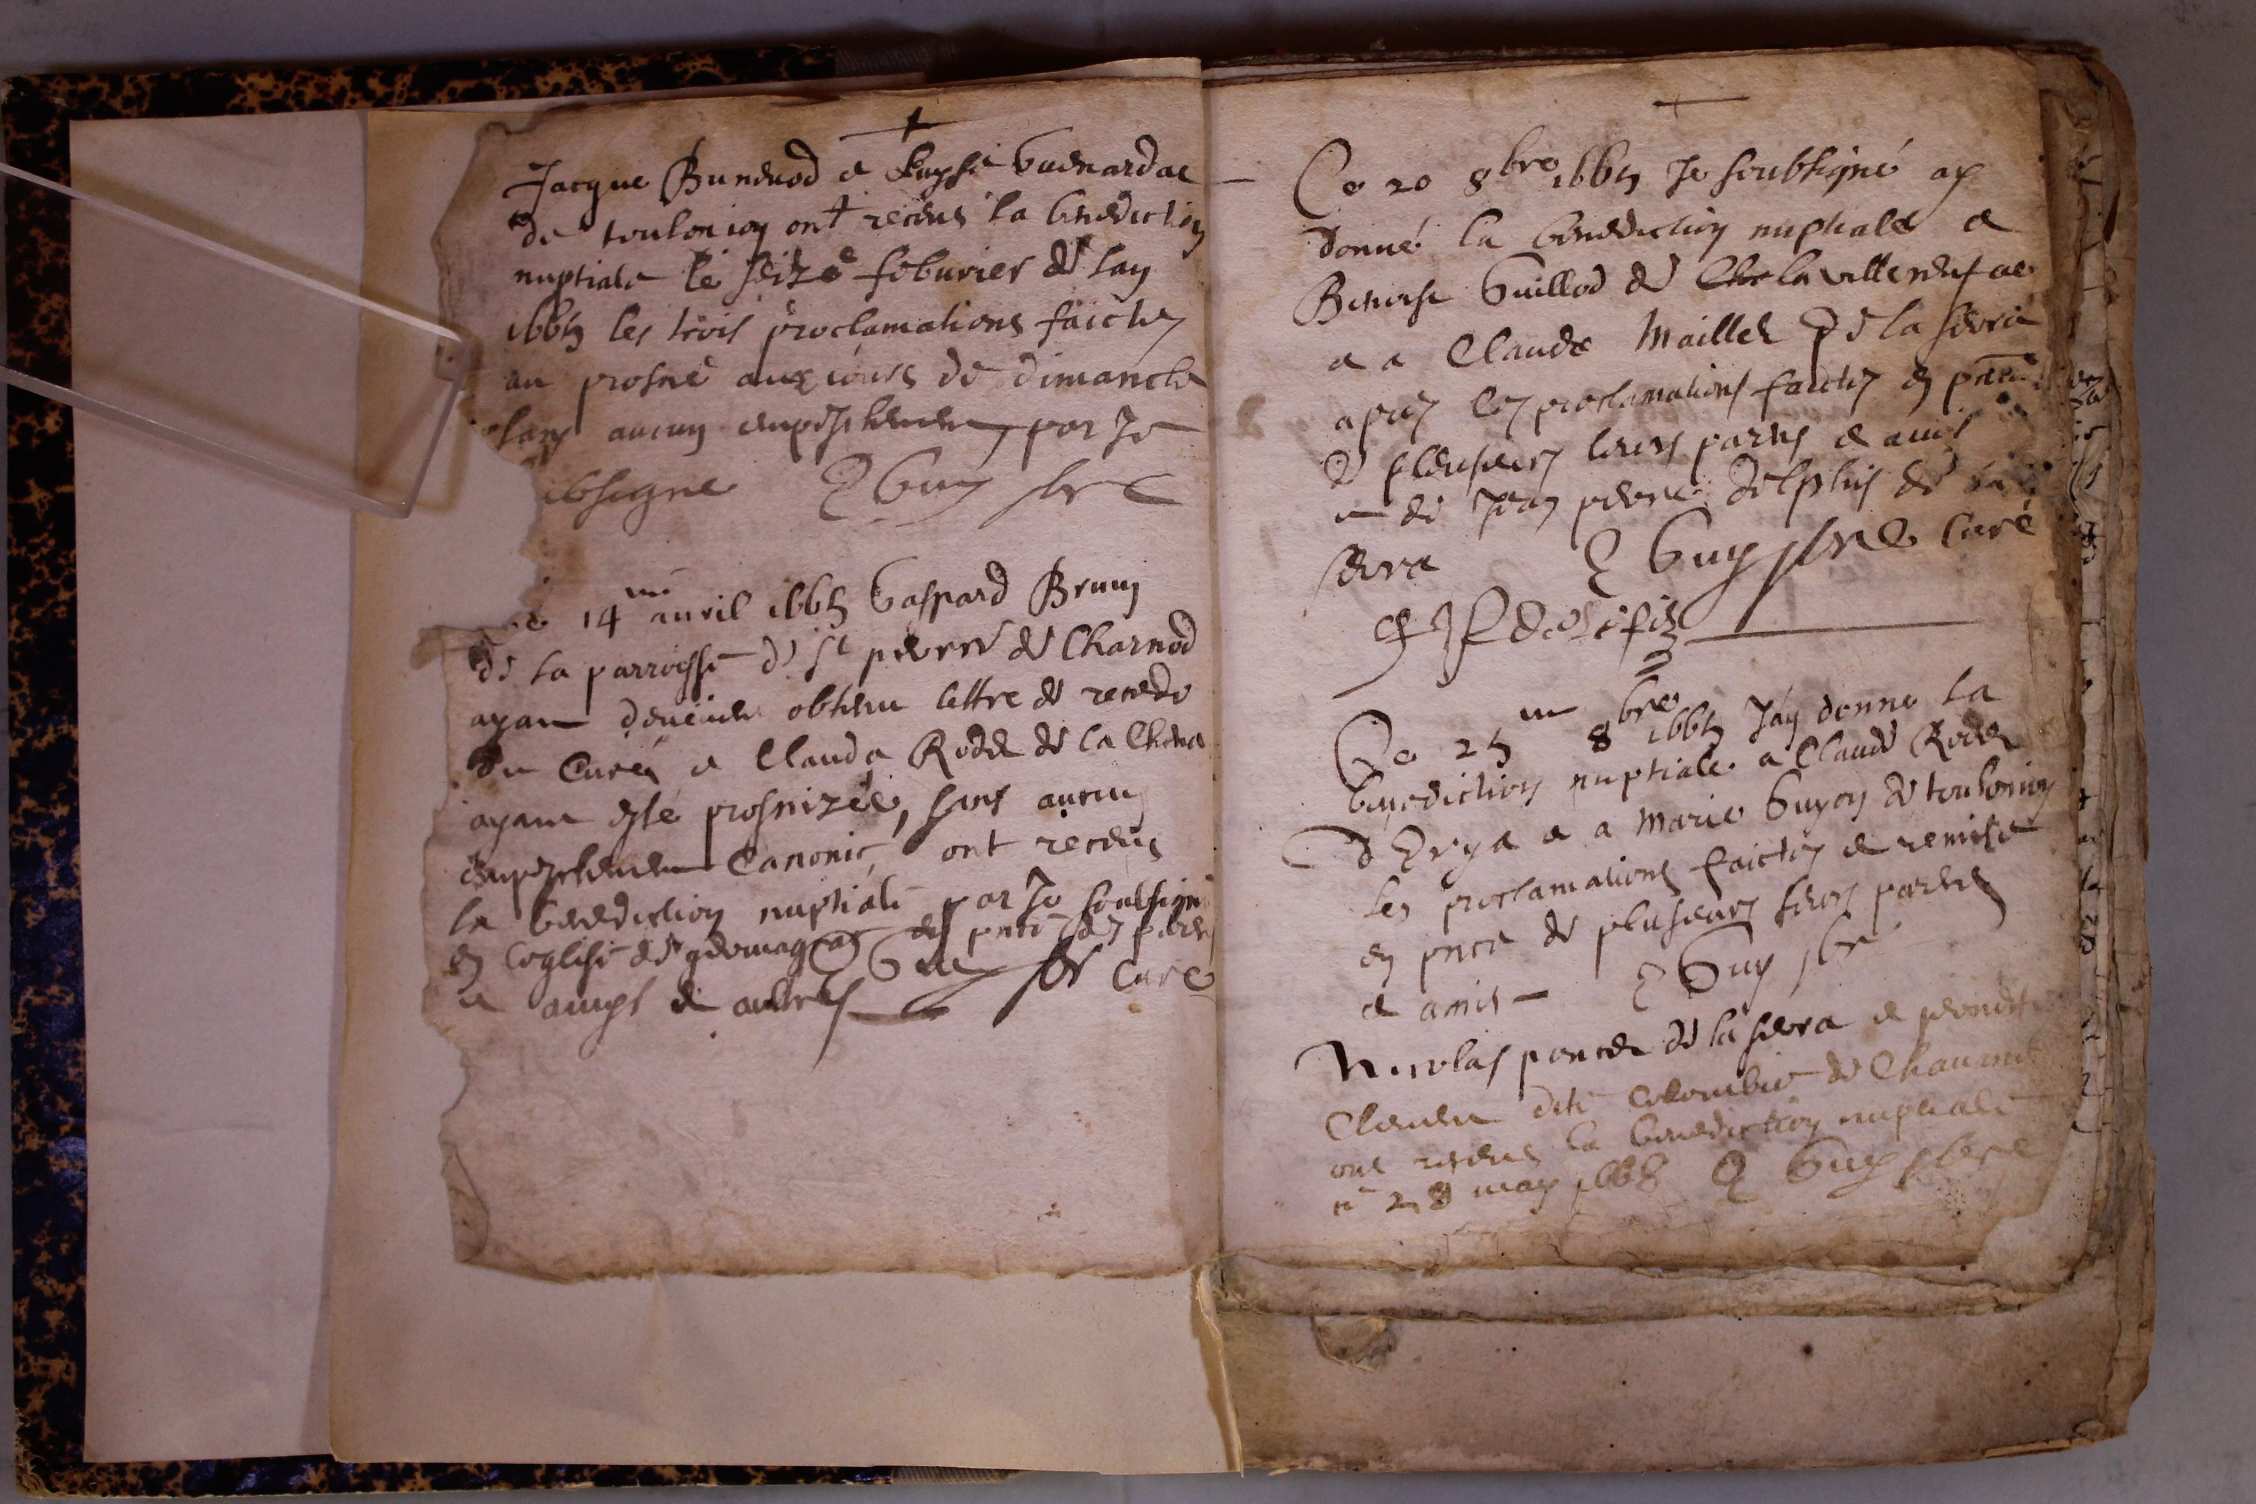 Jacque Bunenod e
de toulonion ont receus la benediction
nuptiale le seize feburier de lan
1665 les trois proclamations faictes
au prosne aux iours de dimanche
sans aucun empeschement par Je
ubsigne E Guy pbre
14me auril 1665 Gaspard Brun
de la parroysse de st pierre de Charnod
ayant obtenu lettre de recede
du Curé e Clauda Rodet de la
ayant esté prosnizée, sans aucun
empeschement Canonic, ont receus
la benediction nuptiale par Je soubsigné
en leglise de st E Guy pbr Curé
e amys e autres
Ce 20 8bre 1665 Je soubsigné ay
donné la benediction nuptiale a
Benoise Guillod de la villeneufve
e a Claude Maillet de la
apres les proclamations faictes en
de pleusieurs leurs parens e amis
e de Jean pierre delphis de
E Guy pbre Curé
Ce 25me 8bre 1665 Jay donné la
benediction nuptiale a Claude Rodet
e a Marie Guyon de toulonion
les proclamations faictes e remise
en pnce de plusieurs leurs parens
e amis E Guy pbre
Nicolas poncet de la e
Clement dite Colombier de
ont receus la benediction nuptiale
le 28 may 1668 E Guy pbre